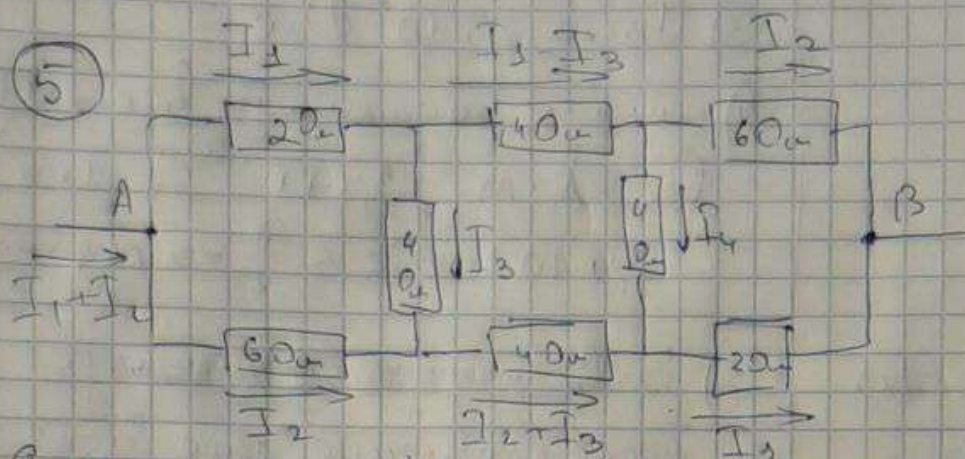 5
I₁ I₁ - I₃ I₂
2 Ом 4 Ом 6 Ом
A 4 Ом I₃ 4 Ом I₄ B
I₁ + I₂
6 Ом 4 Ом 2 Ом
I₂ I₂ + I₃ I₁